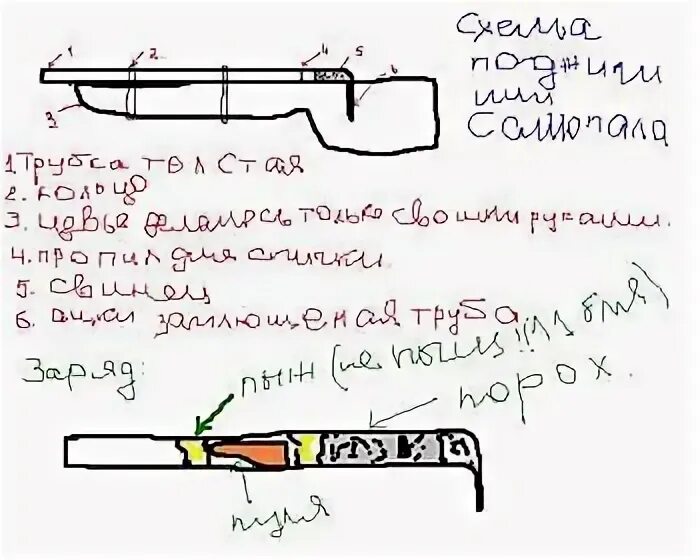 Схема
поджиги
или
Самопала
1 2 4 5
6
3
1. Трубка толстая
2. кольцо
3. делалось только своими руками.
4. пропил для спички
5. свинец
6. заплющеная труба
Заряд:
пыж (не пыщ!!!11 бля)
порох.
пуля